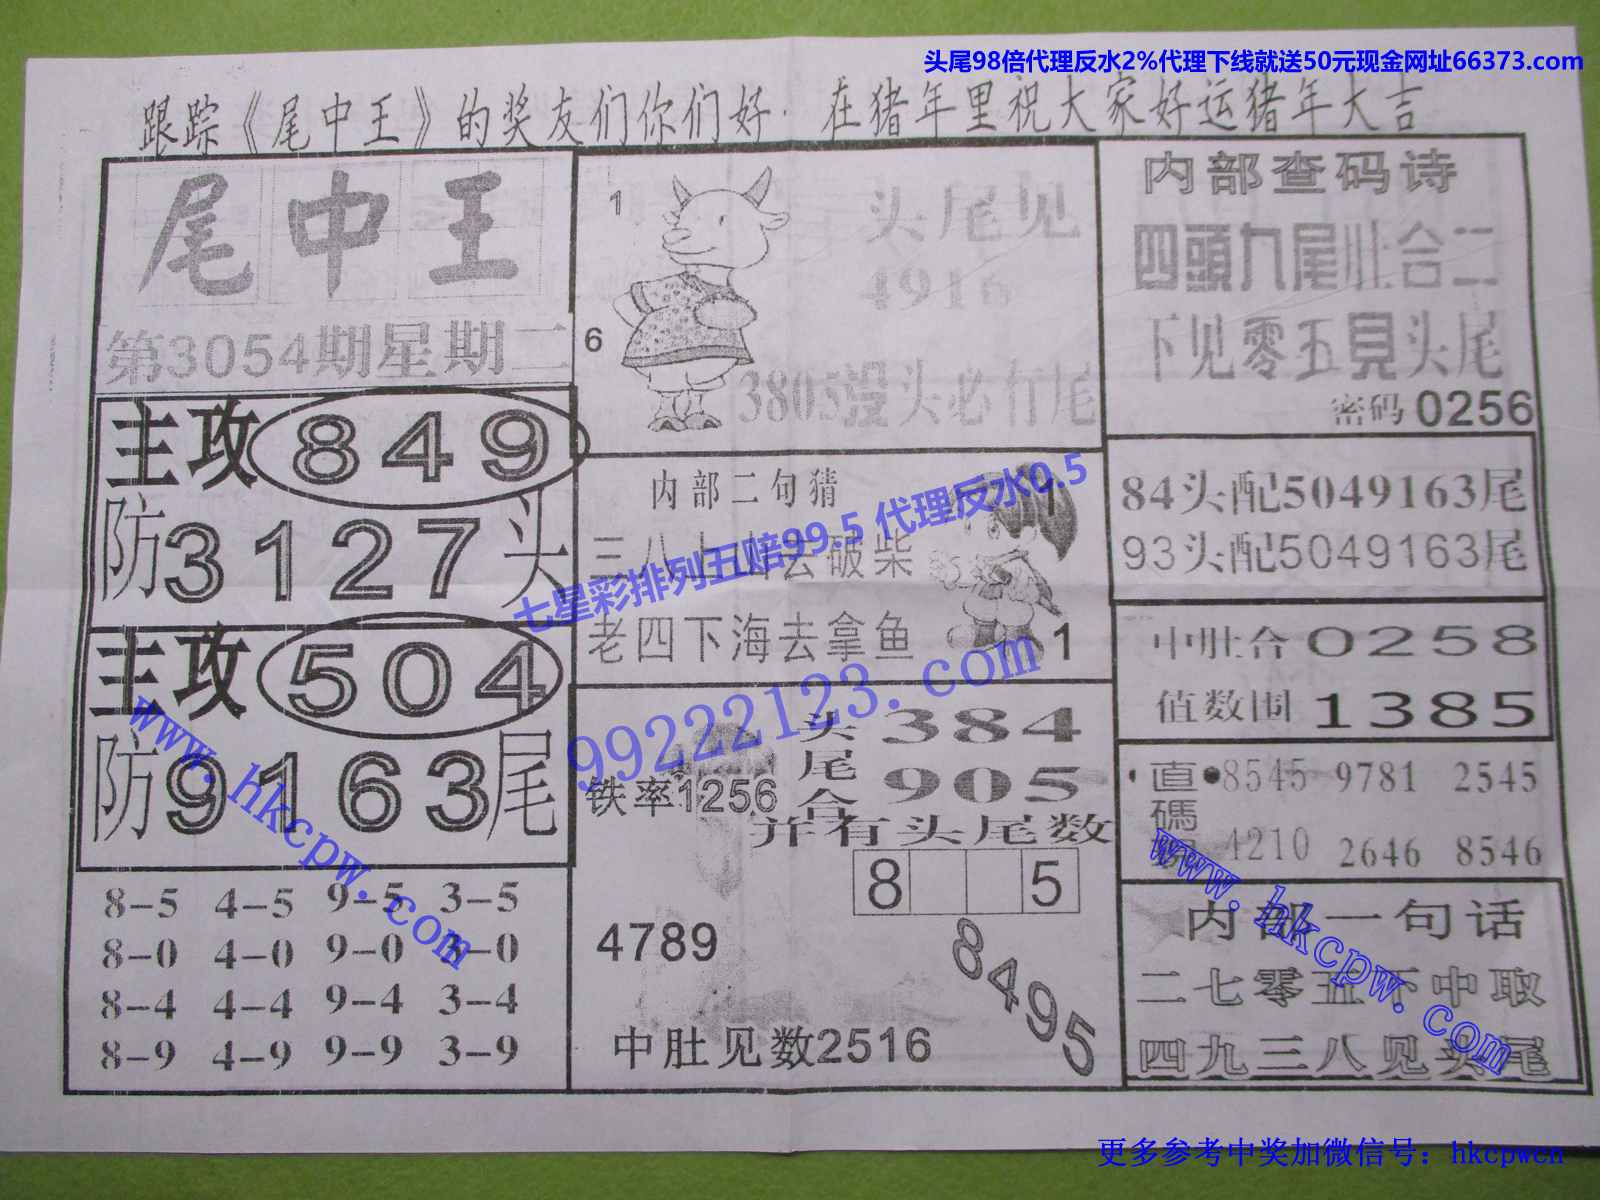 头尾98倍代理反水2%代理下线就送50元现金网址66373.com
跟踪《尾中王》的奖友们你们好·在猪年里祝大家好运猪年大吉
尾中王
第3054期星期二
主攻849
防3127头
主攻504
防9163尾
8-5 4-5 9-5 3-5
8-0 4-0 9-0 3-0
8-4 4-4 9-4 3-4
8-9 4-9 9-9 3-9
1
6
头尾见
4916
3805没头必有尾
内部二句猜
三八上山去破柴
老四下海去拿鱼
1
1
七星彩排列五赔99.5 代理反水0.5
99222123.com
铁率1256
头尾合
384
905
并有头尾数
8 5
4789
8495
中肚见数2516
内部查码诗
四頭九尾肚合二
下见零五見头尾
密码0256
84头配5049163尾
93头配5049163尾
中肚合0258
值数围1385
直碼
8545 9781 2545
4210 2646 8546
内部一句话
二七零五下中取
四九三八见头尾
www.hkcpw.com
www.hkcpw.com
更多参考中奖加微信号：hkcpwcn